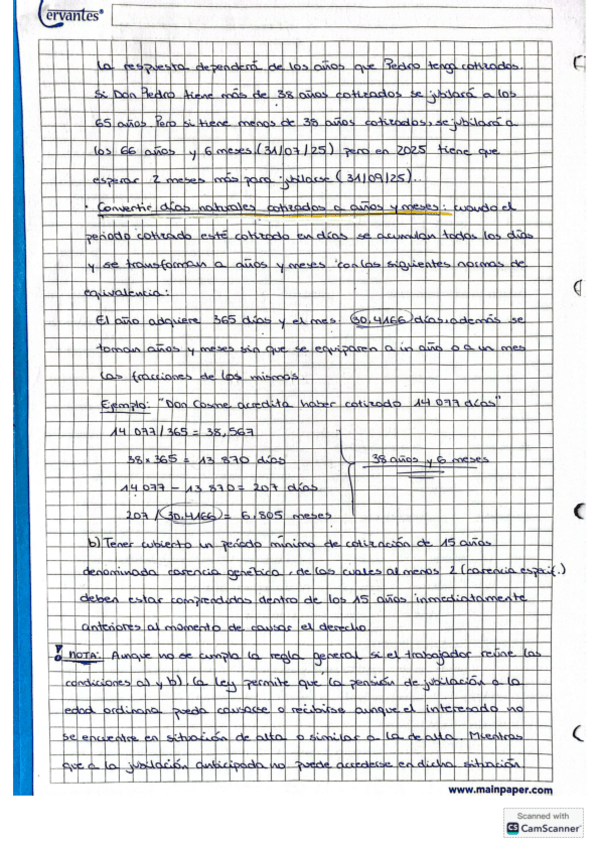 Cervantes®
La respuesta dependerá de los años que Pedro tenga cotizados.
Si Don Pedro tiene más de 38 años cotizados se jubilará a los
65 años. Pero si tiene menos de 38 años cotizados, se jubilará a
los 66 años y 6 meses (31/07/25) pero en 2025 tiene que
esperar 2 meses más para jubilarse (31/09/25)..
· Convertir días naturales cotizados a años y meses: cuando el
periodo cotizado esté cotizado en días se acumulan todos los días
y se transforman a años y meses con las siguientes normas de
equivalencia:
El año adquiere 365 días y el mes 30,4166 días, además se
toman años y meses sin que se equiparen a in año o a un mes
las fracciones de los mismos.
Ejemplo: "Don Cosme acredita haber cotizado 14 077 días"
14 077/365 = 38,567
38 x 365 = 13 870 días
38 años y 6 meses
14 077 - 13 870 = 207 días
207 / 30,4166 = 6,805 meses
b) Tener cubierto un período mínimo de cotización de 15 años
denominada carencia genética, de las cuales al menos 2 (carencia específ.)
deben estar comprendidas dentro de los 15 años inmediatamente
anteriores al momento de causar el derecho.
! NOTA: Aunque no se cumpla la regla general si el trabajador reúne las
condiciones a) y b). La ley permite que la pensión de jubilación a la
edad ordinaria pueda causarse o recibirse aunque el interesado no
se encuentre en situación de alta o similar a la de alta. Mientras
que a la jubilación anticipada no puede accederse en dicha situación.
www.mainpaper.com
Scanned with
CS CamScanner